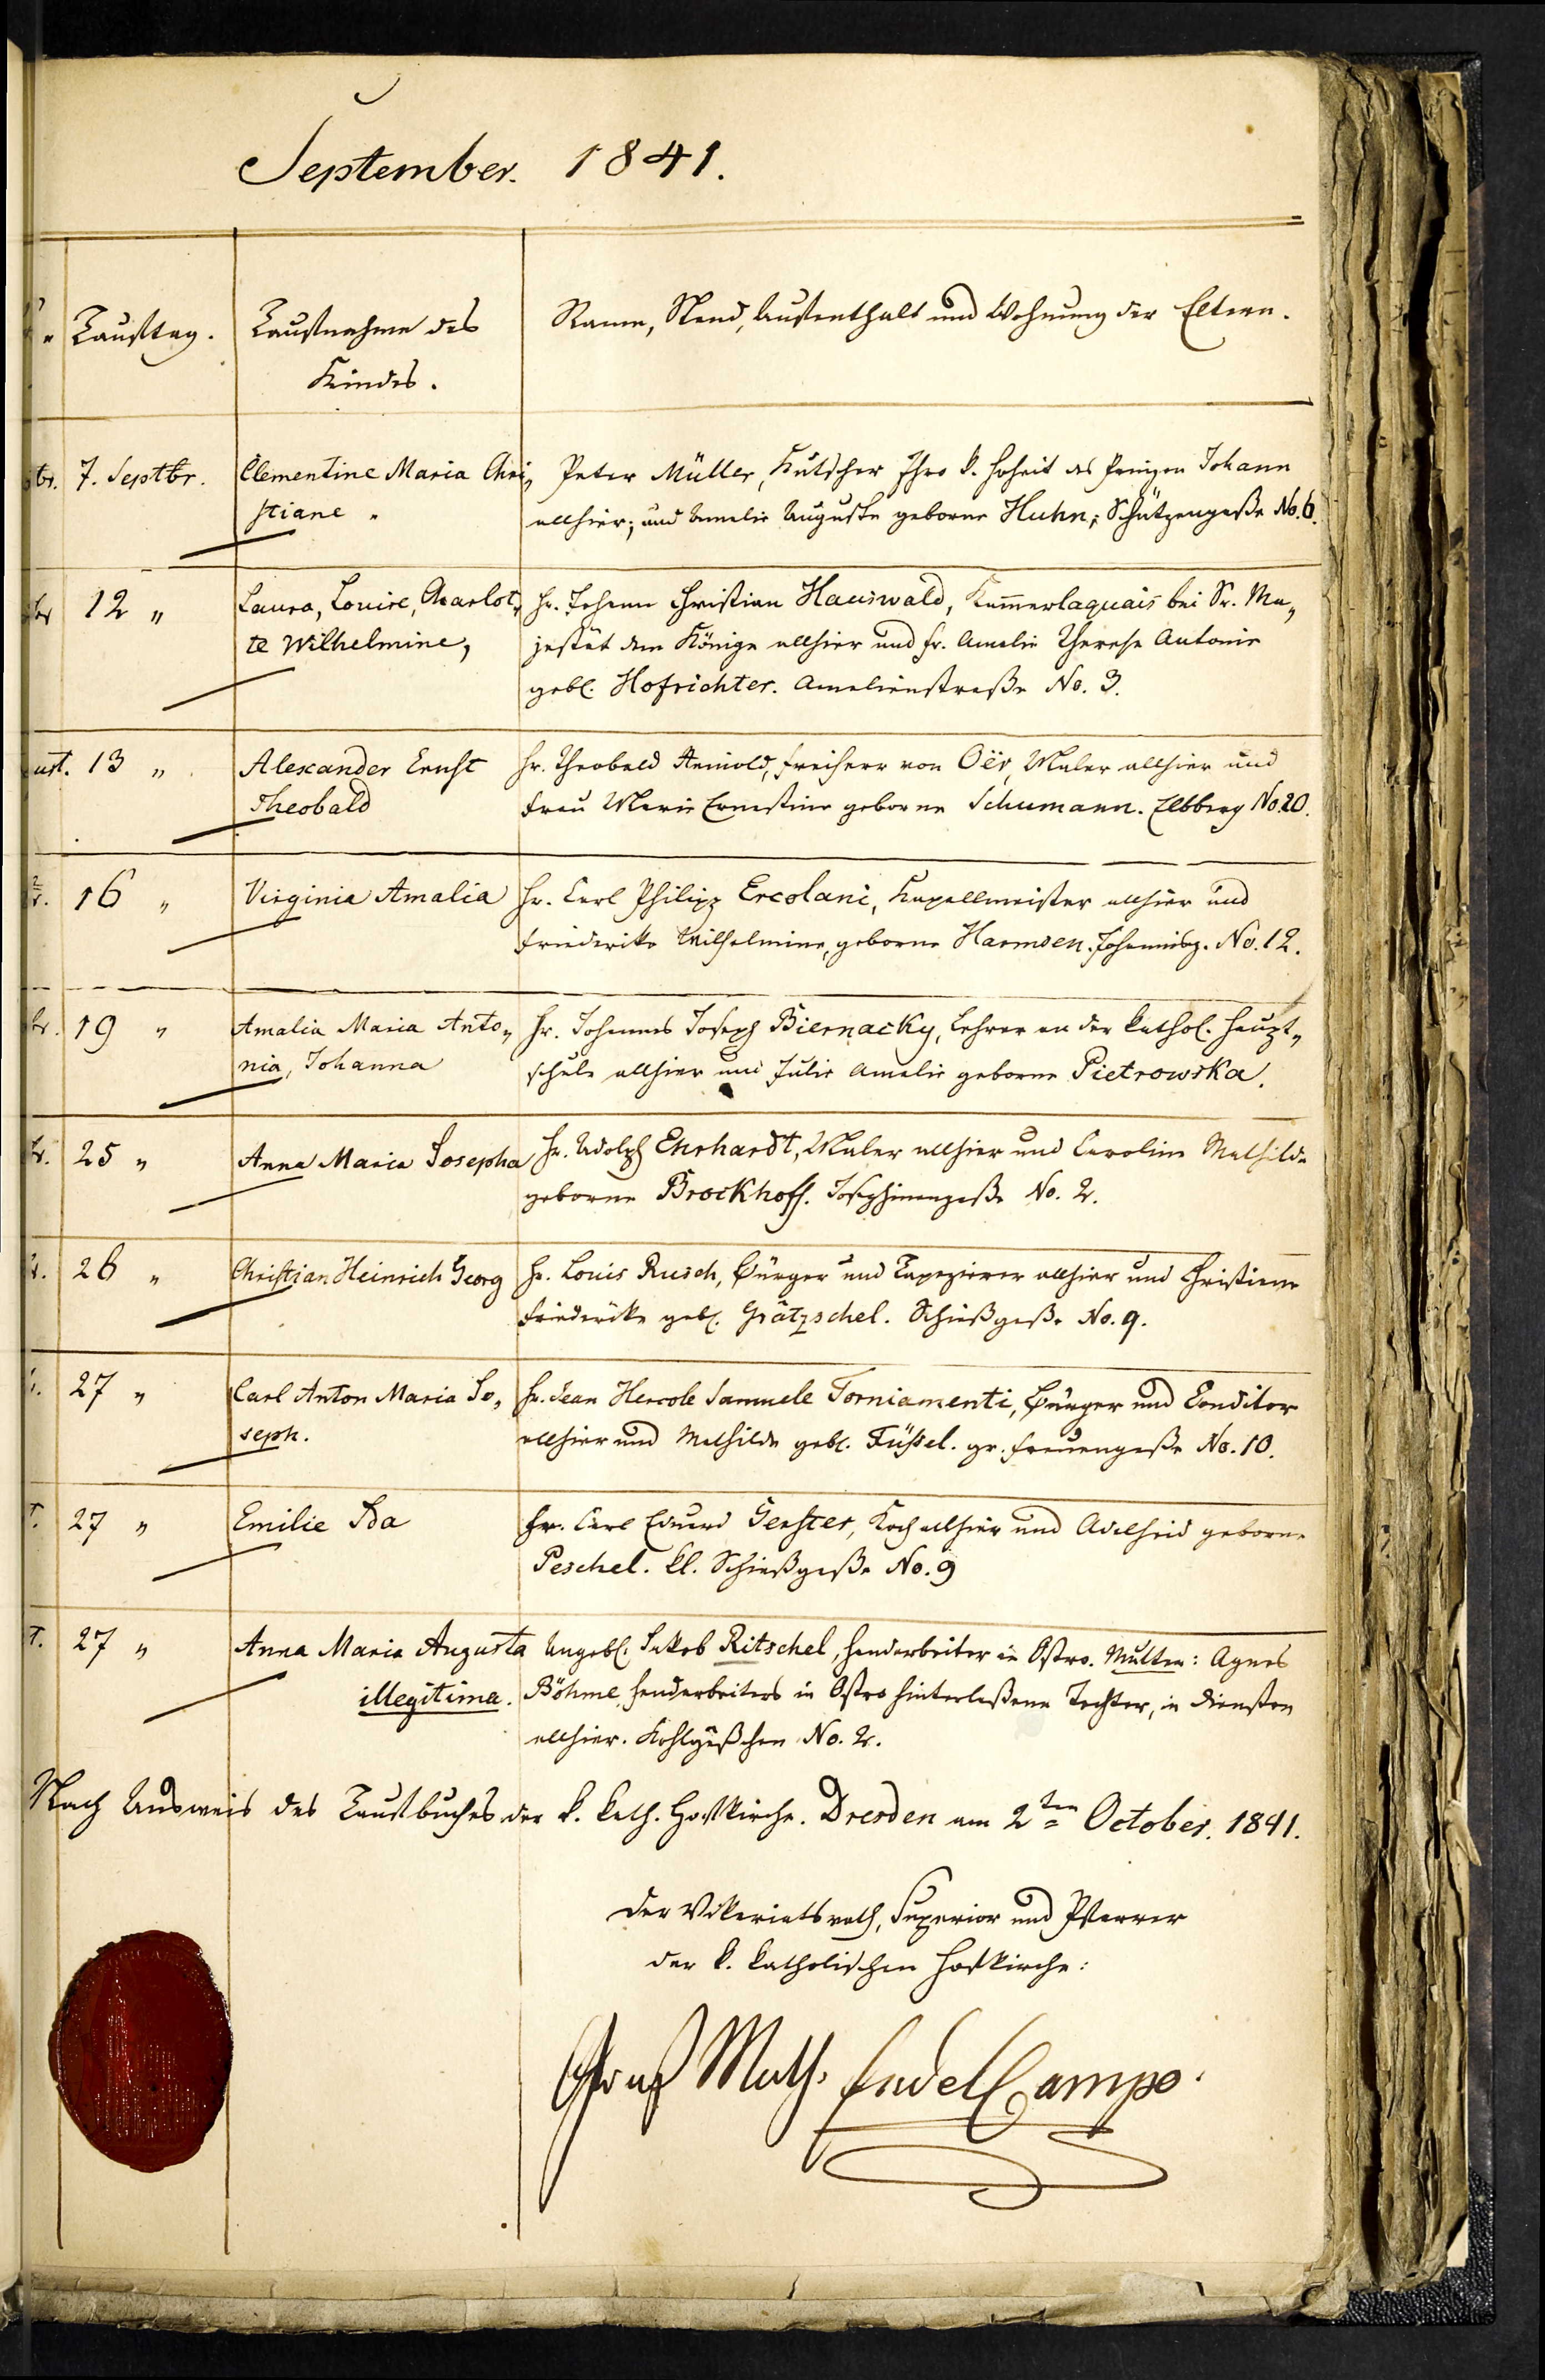 September. 1841.
Tauftag.
Taufnahme des
Kindes.
Name, Stand, Aufenthalt und Wohnung der Eltern.
7. Septbr.
Clementine Maria Chri„
stiane.
Peter Müller, Kutscher Ihro k. Hoheit des Prinzen Johann
allhier; und Amalie Auguste geborne Huhn; Schützengaße No. 6.
12 „
Laura, Louise, Charlot„
te Wilhelmine,
Hr. Johann Christian Hauswald, Kam̄erlaquais bei Sr. Ma„
jestät dem Könige allhier und Fr. Amalie Therese Antonie
gebl. Hofrichter. Amalienstraße No. 3.
13 „
Alexander Ernst
Theobald
Hr. Theobald Reinold, Freiherr von Oër, Maler allhier und
Frau Marie Ernestine geborne Schumann. Elbberg No. 20.
16 „
Virginia Amalia
Hr. Carl Philipp Ercolani, Kapellmeister allhier und
Friederike Wilhelmine, geborne Harmsen. Johannisg. No. 12.
19 „
Amalia Maria Anto„
nia, Johanna
Hr. Johannes Joseph Biernacky, Lehrer an der kathol. Haupt„
schule allhier und Julie Amalie geborne Pietrowska.
25 „
Anna Maria Josepha
Hr. Adolph Ehrhardt, Maler allhier und Caroline Mathilde
geborne Brockhoff. Josephinengaße No. 2.
26 „
Christian Heinrich Georg
Hr. Louis Rusch, Bürger und Tapezierer allhier und Christiane
Friedericke gebl. Grätzschel. Schießgaße No. 9.
27 „
Carl Anton Maria Jo„
seph.
Hr. Jean Hercole Samuele Torniamenti, Bürger und Conditor
allhier und Mathilde gebl. Füßel. gr. Frauengaße No. 10.
27 „
Emilie Ida
Hr. Carl Eduard Gerster, Koch allhier und Adelheid geborne
Peschel. kl. Schießgaße No. 9
27 „
Anna Maria Augusta
illegitima.
Angebl. Jakob Ritschel, Handarbeiter in Ostro. Mutter: Agnes
Böhme, Handarbeiters in Ostro hinterlaßene Tochter, in Diensten
allhier. Kohlgäßchen No. 2.
Nach Ausweis des Taufbuches der k. kath. Hofkirche. Dresden am 2ten October. 1841.
Der Vikariatsrath, Superior und Pfarrer
der k. katholischen Hofkirche:
Math.